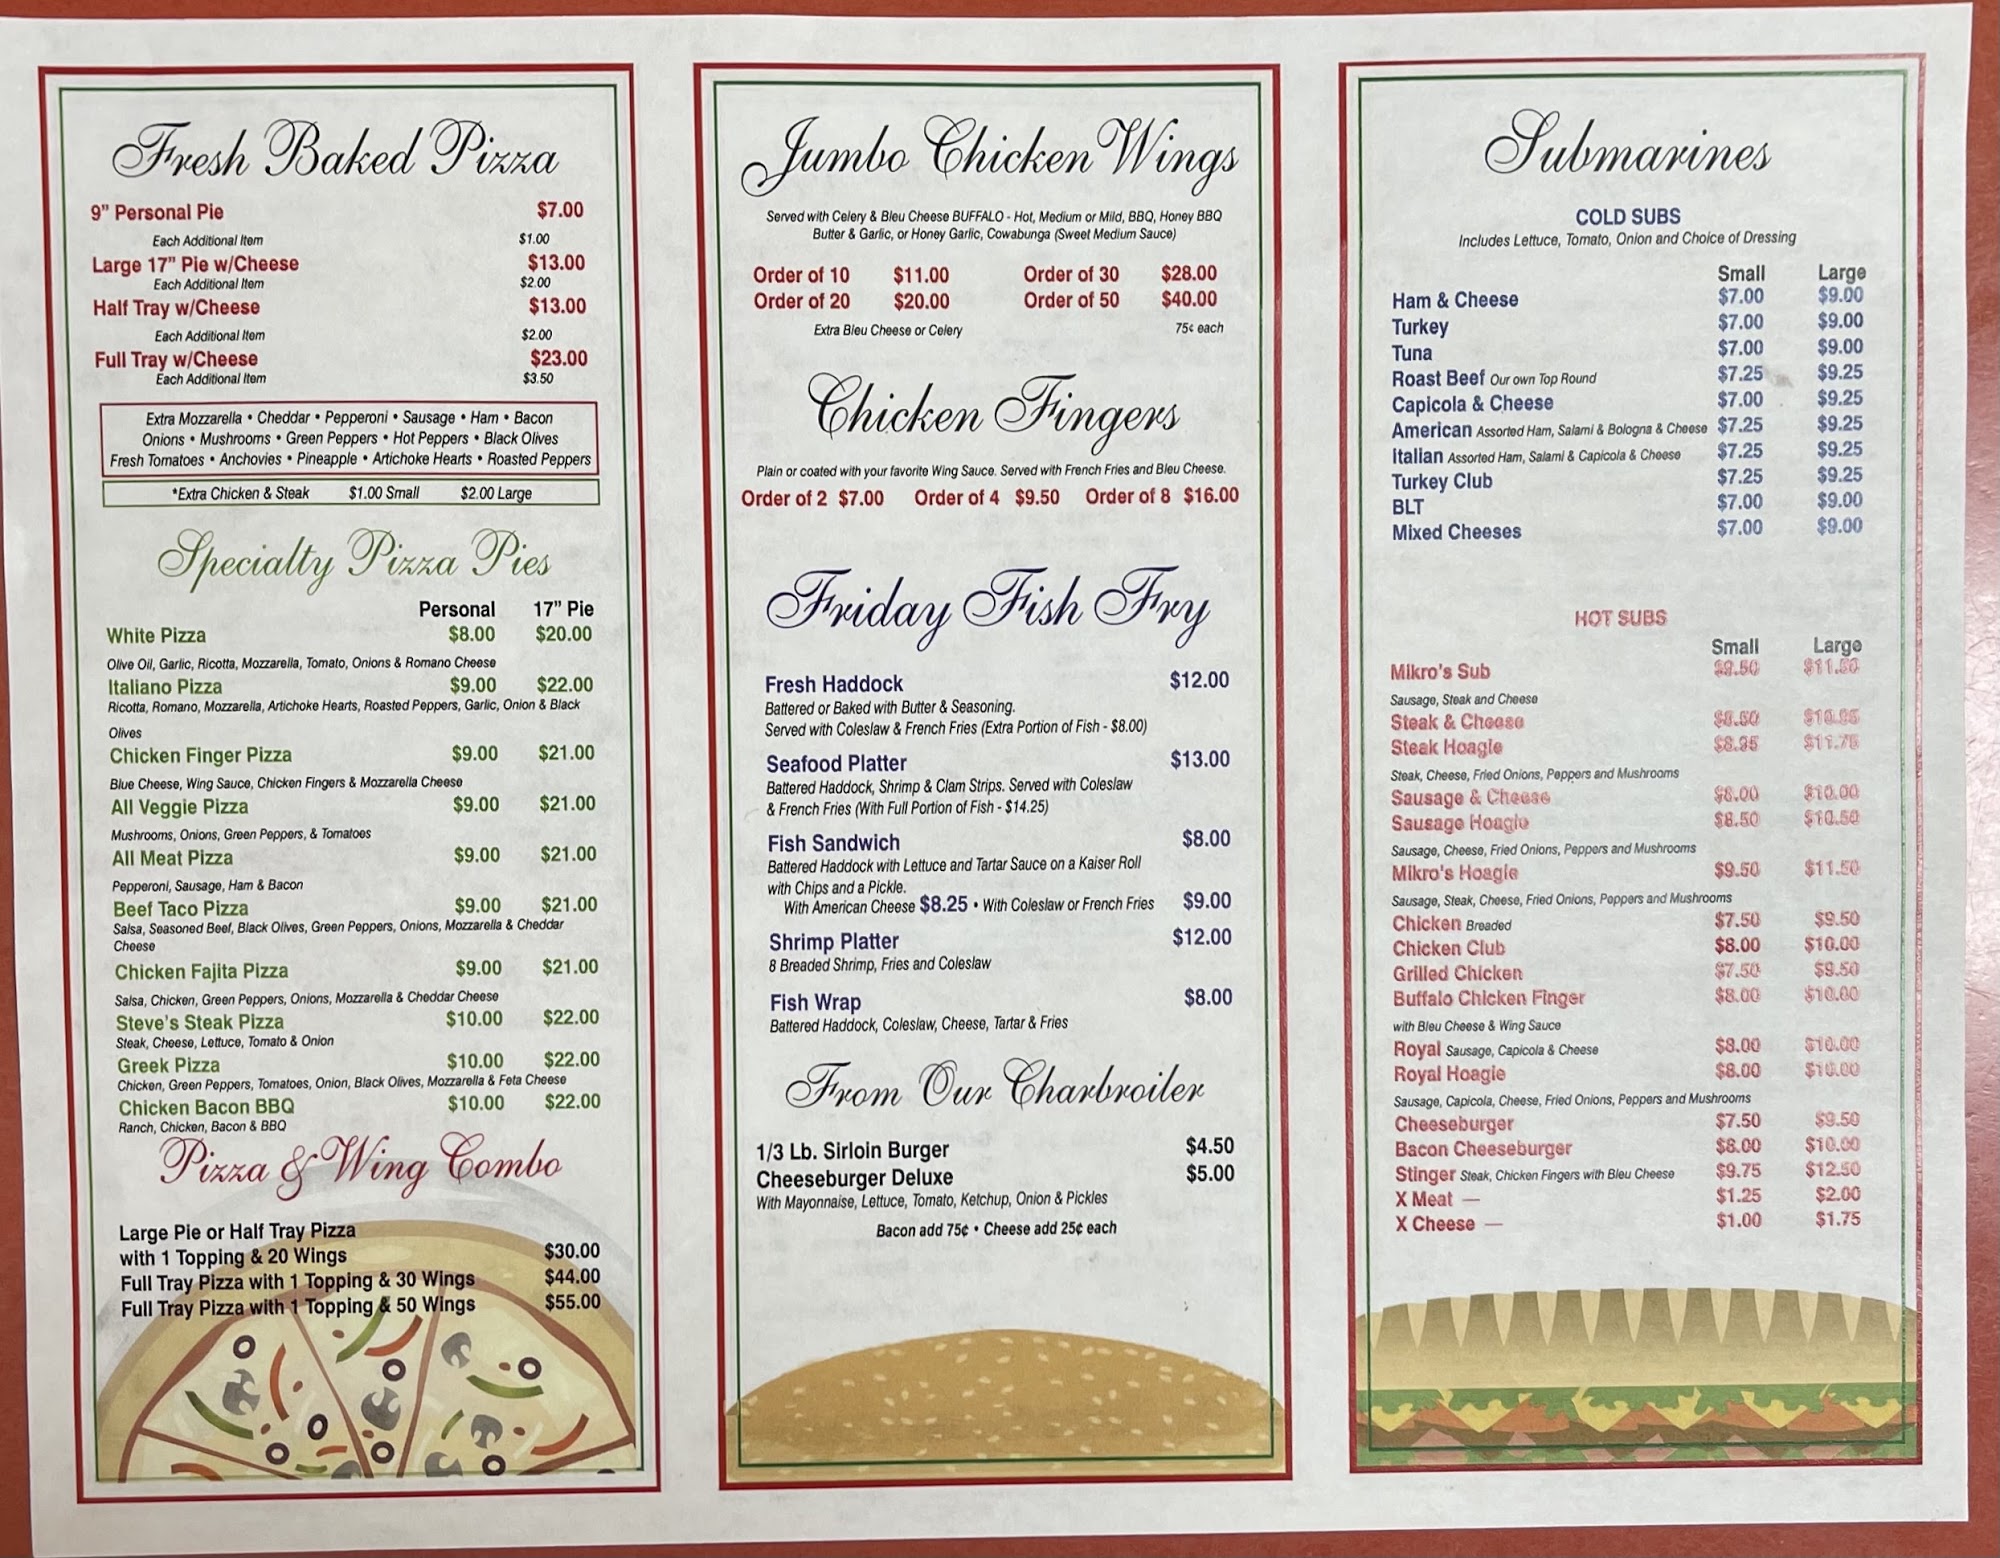 Fresh Baked Pizza
9” Personal Pie $7.00
Each Additional Item $1.00
Large 17” Pie w/Cheese $13.00
Each Additional Item $2.00
Half Tray w/Cheese $13.00
Each Additional Item $2.00
Full Tray w/Cheese $23.00
Each Additional Item $3.50
Extra Mozzarella • Cheddar • Pepperoni • Sausage • Ham • Bacon
Onions • Mushrooms • Green Peppers • Hot Peppers • Black Olives
Fresh Tomatoes • Anchovies • Pineapple • Artichoke Hearts • Roasted Peppers
*Extra Chicken & Steak $1.00 Small $2.00 Large
Specialty Pizza Pies
Personal 17” Pie
White Pizza $8.00 $20.00
Olive Oil, Garlic, Ricotta, Mozzarella, Tomato, Onions & Romano Cheese
Italiano Pizza $9.00 $22.00
Ricotta, Romano, Mozzarella, Artichoke Hearts, Roasted Peppers, Garlic, Onion & Black
Olives
Chicken Finger Pizza $9.00 $21.00
Blue Cheese, Wing Sauce, Chicken Fingers & Mozzarella Cheese
All Veggie Pizza $9.00 $21.00
Mushrooms, Onions, Green Peppers, & Tomatoes
All Meat Pizza $9.00 $21.00
Pepperoni, Sausage, Ham & Bacon
Beef Taco Pizza $9.00 $21.00
Salsa, Seasoned Beef, Black Olives, Green Peppers, Onions, Mozzarella & Cheddar
Cheese
Chicken Fajita Pizza $9.00 $21.00
Salsa, Chicken, Green Peppers, Onions, Mozzarella & Cheddar Cheese
Steve's Steak Pizza $10.00 $22.00
Steak, Cheese, Lettuce, Tomato & Onion
Greek Pizza $10.00 $22.00
Chicken, Green Peppers, Tomatoes, Onion, Black Olives, Mozzarella & Feta Cheese
Chicken Bacon BBQ $10.00 $22.00
Ranch, Chicken, Bacon & BBQ
Pizza & Wing Combo
Large Pie or Half Tray Pizza
with 1 Topping & 20 Wings $30.00
Full Tray Pizza with 1 Topping & 30 Wings $44.00
Full Tray Pizza with 1 Topping & 50 Wings $55.00
Jumbo Chicken Wings
Served with Celery & Bleu Cheese BUFFALO - Hot, Medium or Mild, BBQ, Honey BBQ
Butter & Garlic, or Honey Garlic, Cowabunga (Sweet Medium Sauce)
Order of 10 $11.00 Order of 30 $28.00
Order of 20 $20.00 Order of 50 $40.00
Extra Bleu Cheese or Celery 75¢ each
Chicken Fingers
Plain or coated with your favorite Wing Sauce. Served with French Fries and Bleu Cheese.
Order of 2 $7.00 Order of 4 $9.50 Order of 8 $16.00
Friday Fish Fry
Fresh Haddock $12.00
Battered or Baked with Butter & Seasoning.
Served with Coleslaw & French Fries (Extra Portion of Fish - $8.00)
Seafood Platter $13.00
Battered Haddock, Shrimp & Clam Strips. Served with Coleslaw
& French Fries (With Full Portion of Fish - $14.25)
Fish Sandwich $8.00
Battered Haddock with Lettuce and Tartar Sauce on a Kaiser Roll
with Chips and a Pickle.
With American Cheese $8.25 • With Coleslaw or French Fries $9.00
Shrimp Platter $12.00
8 Breaded Shrimp, Fries and Coleslaw
Fish Wrap $8.00
Battered Haddock, Coleslaw, Cheese, Tartar & Fries
From Our Charbroiler
1/3 Lb. Sirloin Burger $4.50
Cheeseburger Deluxe $5.00
With Mayonnaise, Lettuce, Tomato, Ketchup, Onion & Pickles
Bacon add 75¢ • Cheese add 25¢ each
Submarines
COLD SUBS
Includes Lettuce, Tomato, Onion and Choice of Dressing
Small Large
Ham & Cheese $7.00 $9.00
Turkey $7.00 $9.00
Tuna $7.00 $9.00
Roast Beef Our own Top Round $7.25 $9.25
Capicola & Cheese $7.00 $9.25
American Assorted Ham, Salami & Bologna & Cheese $7.25 $9.25
Italian Assorted Ham, Salami & Capicola & Cheese $7.25 $9.25
Turkey Club $7.25 $9.25
BLT $7.00 $9.00
Mixed Cheeses $7.00 $9.00
HOT SUBS
Small Large
Mikro's Sub $11.50
Sausage, Steak and Cheese
Steak & Cheese
Steak Hoagie $8.95 $11.75
Steak, Cheese, Fried Onions, Peppers and Mushrooms
Sausage & Cheese $8.00 $10.00
Sausage Hoagie $8.50 $10.50
Sausage, Cheese, Fried Onions, Peppers and Mushrooms
Mikro's Hoagie $9.50 $11.50
Sausage, Steak, Cheese, Fried Onions, Peppers and Mushrooms
Chicken Breaded $7.50 $9.50
Chicken Club $8.00 $10.00
Grilled Chicken $7.50 $9.50
Buffalo Chicken Finger $8.00 $10.00
with Bleu Cheese & Wing Sauce
Royal Sausage, Capicola & Cheese $8.00 $10.00
Royal Hoagie $8.00 $10.00
Sausage, Capicola, Cheese, Fried Onions, Peppers and Mushrooms
Cheeseburger $7.50 $9.50
Bacon Cheeseburger $8.00 $10.00
Stinger Steak, Chicken Fingers with Bleu Cheese $9.75 $12.50
X Meat — $1.25 $2.00
X Cheese — $1.00 $1.75